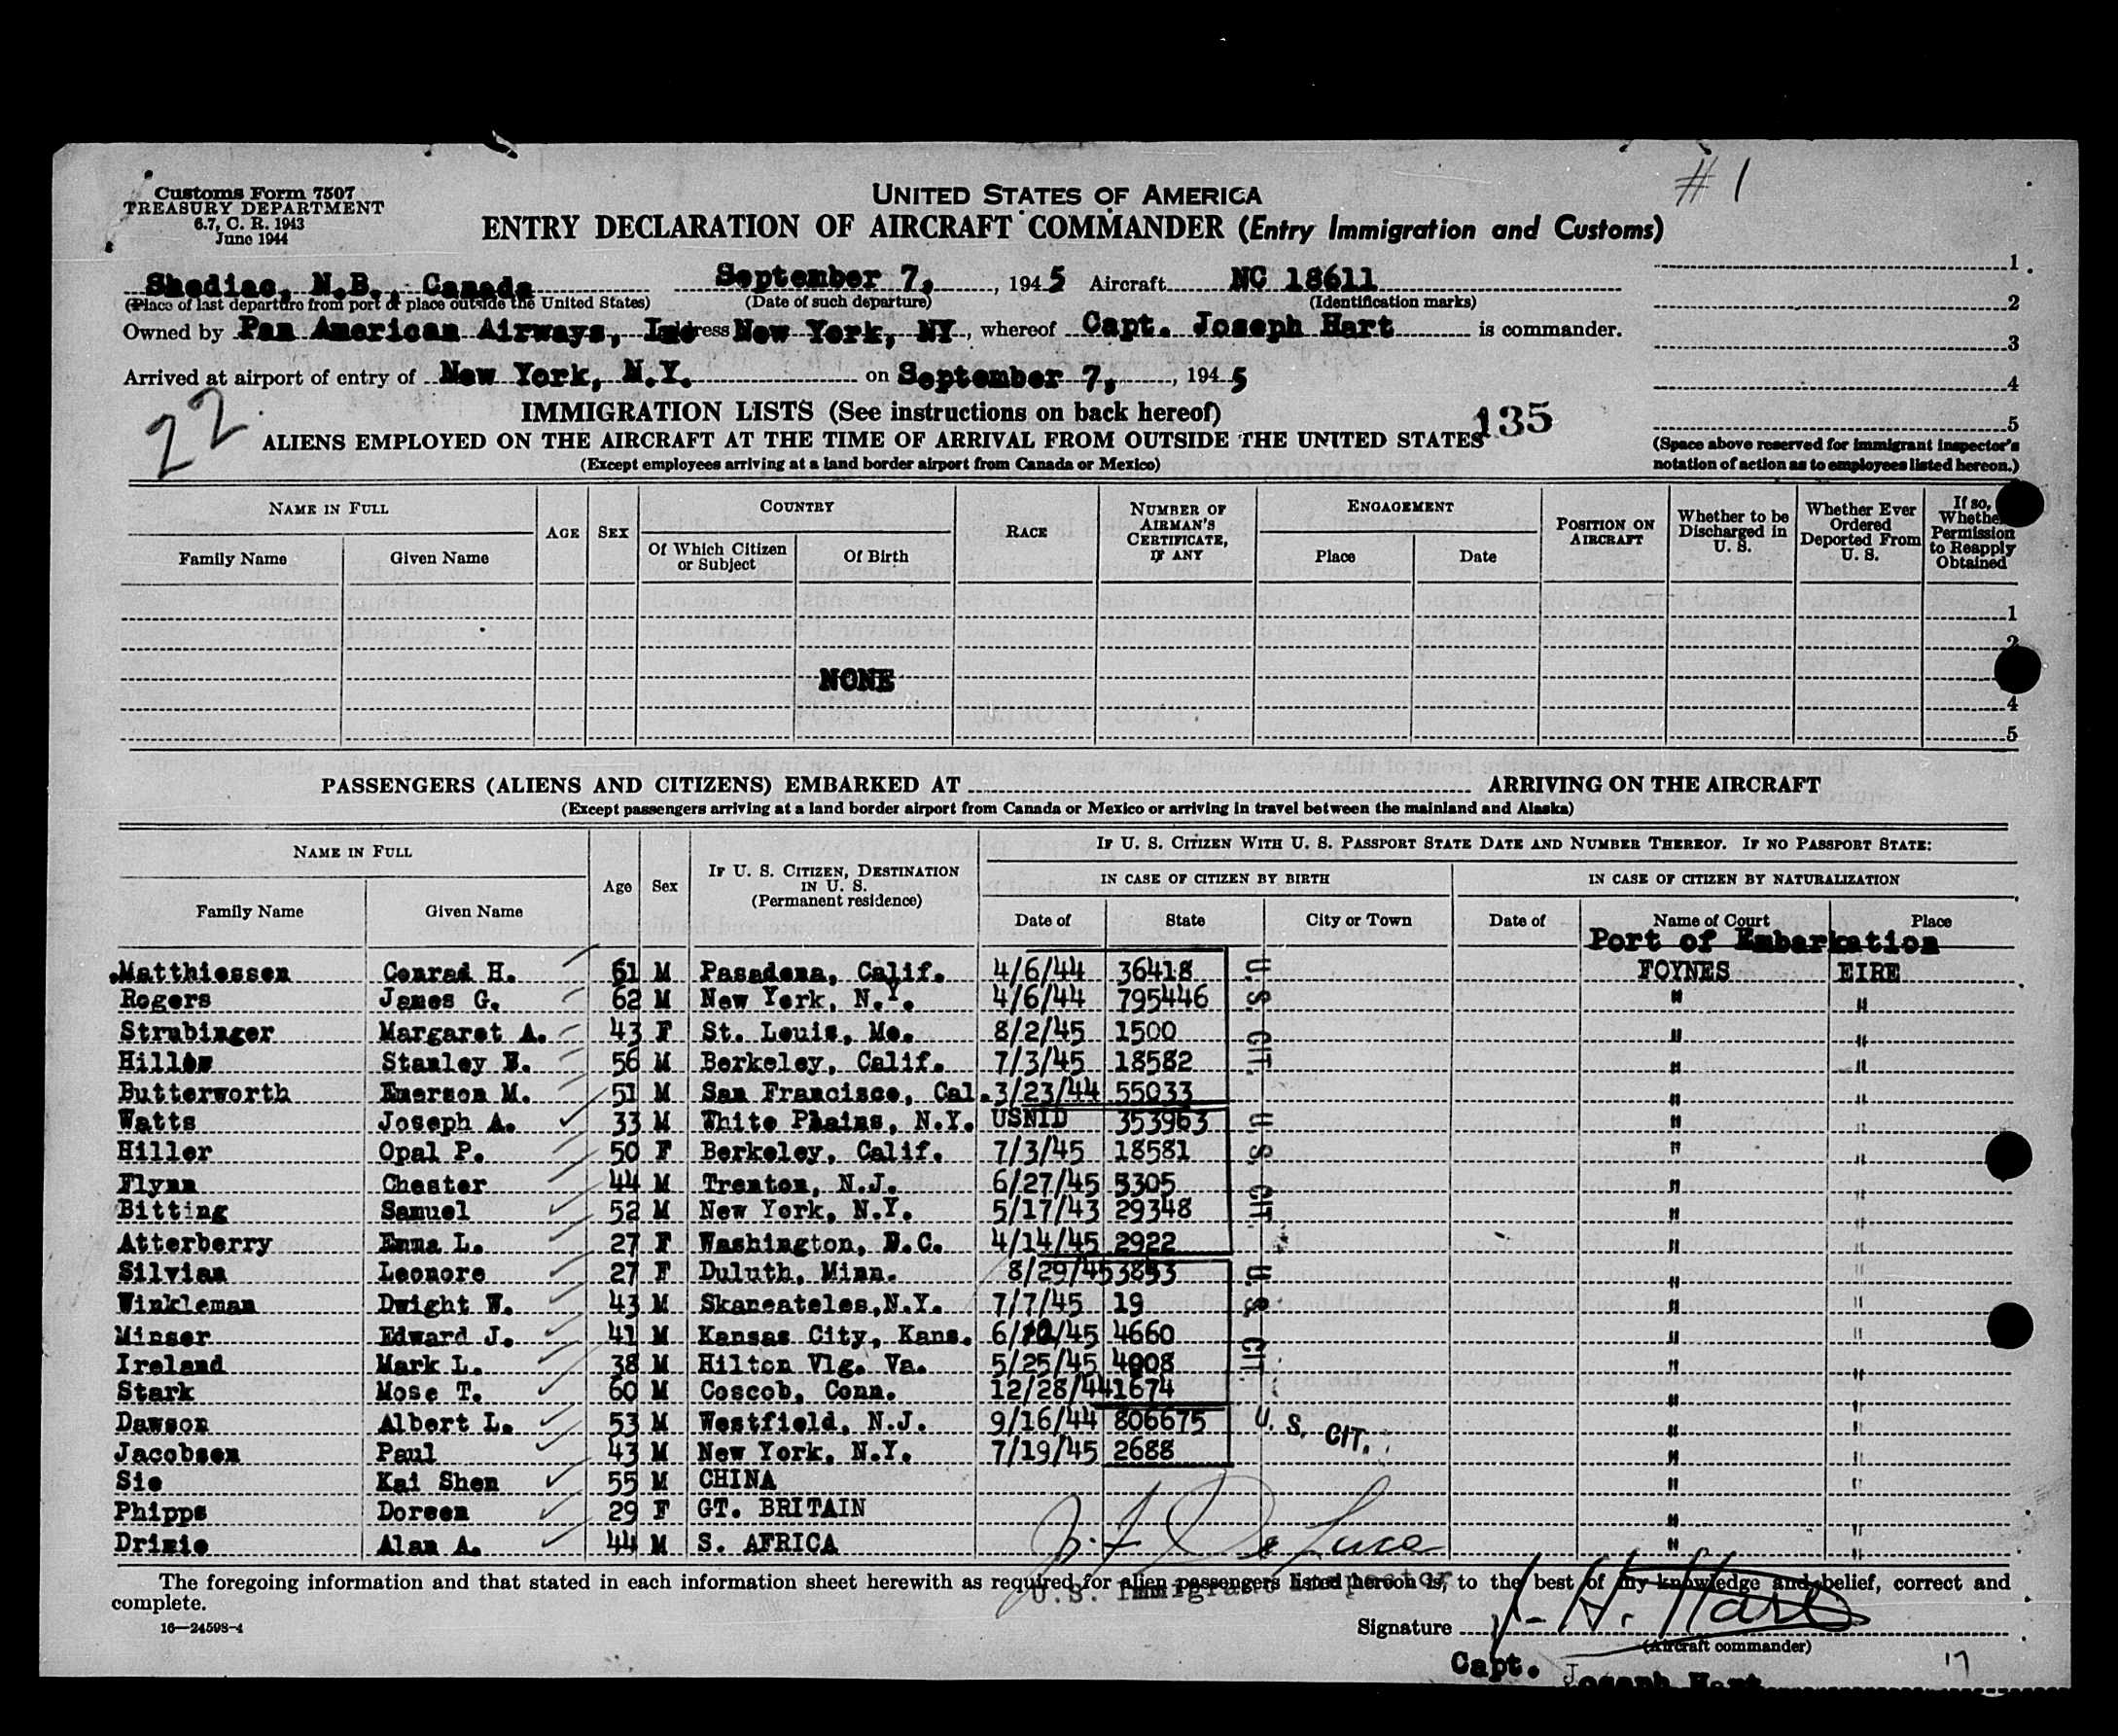 # 1
Customs Form 7507
TREASURY DEPARTMENT
6.7, C. R. 1943
June 1944
UNITED STATES OF AMERICA
ENTRY DECLARATION OF AIRCRAFT COMMANDER (Entry Immigration and Customs)
Shediac, N.B., Canada September 7, , 1945 Aircraft NC 18611 1
(Place of last departure from port or place outside the United States) (Date of such departure) (Identification marks)
2
Owned by Pan American Airways, Inc ress New York, NY , whereof Capt. Joseph Hart is commander.
3
Arrived at airport of entry of New York, N.Y. on September 7, , 1945 4
22 IMMIGRATION LISTS (See instructions on back hereof) 135 5
ALIENS EMPLOYED ON THE AIRCRAFT AT THE TIME OF ARRIVAL FROM OUTSIDE THE UNITED STATES
(Space above reserved for immigrant inspector's
(Except employees arriving at a land border airport from Canada or Mexico) notation of action as to employees listed hereon.)
NAME IN FULL AGE SEX COUNTRY RACE NUMBER OF AIRMAN'S CERTIFICATE, IF ANY ENGAGEMENT POSITION ON AIRCRAFT Whether to be Discharged in U. S. Whether Ever Ordered Deported From U. S. If so, Whether Permission to Reapply Obtained
Family Name Given Name Of Which Citizen or Subject Of Birth Place Date
1
2
NONE
4
5
PASSENGERS (ALIENS AND CITIZENS) EMBARKED AT ARRIVING ON THE AIRCRAFT
(Except passengers arriving at a land border airport from Canada or Mexico or arriving in travel between the mainland and Alaska)
NAME IN FULL Age Sex IF U. S. CITIZEN, DESTINATION IN U. S. (Permanent residence) IF U. S. CITIZEN WITH U. S. PASSPORT STATE DATE AND NUMBER THEREOF. IF NO PASSPORT STATE:
IN CASE OF CITIZEN BY BIRTH IN CASE OF CITIZEN BY NATURALIZATION
Family Name Given Name Date of State City or Town Date of Name of Court Place
Port of Embarkation
Matthiessen Conrad H. 61 M Pasadena, Calif. 4/6/44 36418 U. S. CIT. FOYNES EIRE
Rogers James G. 62 M New York, N.Y. 4/6/44 795446 " "
Strubinger Margaret A. 43 F St. Louis, Mo. 8/2/45 1500 " "
Hiller Stanley B. 56 M Berkeley, Calif. 7/3/45 18582 " "
Butterworth Emerson M. 51 M San Francisco, Cal. 3/23/44 55033 " "
Watts Joseph A. 33 M White Plains, N.Y. USNID 353963 U. S. CIT. " "
Hiller Opal P. 50 F Berkeley, Calif. 7/3/45 18581 " "
Flynn Chester 44 M Trenton, N.J. 6/27/45 5305 " "
Bitting Samuel 52 M New York, N.Y. 5/17/43 29348 " "
Atterberry Emma L. 27 F Washington, D.C. 4/14/45 2922 " "
Silvian Leonore 27 F Duluth, Minn. 8/29/45 3853 U. S. CIT. " "
Winkleman Dwight W. 43 M Skaneateles, N.Y. 7/7/45 19 " "
Minser Edward J. 41 M Kansas City, Kans. 4660 " "
Ireland Mark L. 38 M Hilton Vlg. Va. 5/25/45 4008 " "
Stark Mose T. 60 M Coscob, Conn. 12/28/44 1674 " "
Dawson Albert L. 53 M Westfield, N.J. 9/16/44 806675 U. S. CIT. " "
Jacobsen Paul 43 M New York, N.Y. 7/19/45 2688 " "
Sie Kai Shen 55 M CHINA " "
Phipps Doreen 29 F GT. BRITAIN " "
Drizie Alan A. 44 M S. AFRICA " "
De Luca
The foregoing information and that stated in each information sheet herewith as required for alien passengers listed hereon is, to the best of my knowledge and belief, correct and
U.S. Immigrant Inspector
complete.
16—24598-4
Signature J. H. Hart
(Aircraft commander)
Capt. Joseph Hart 17